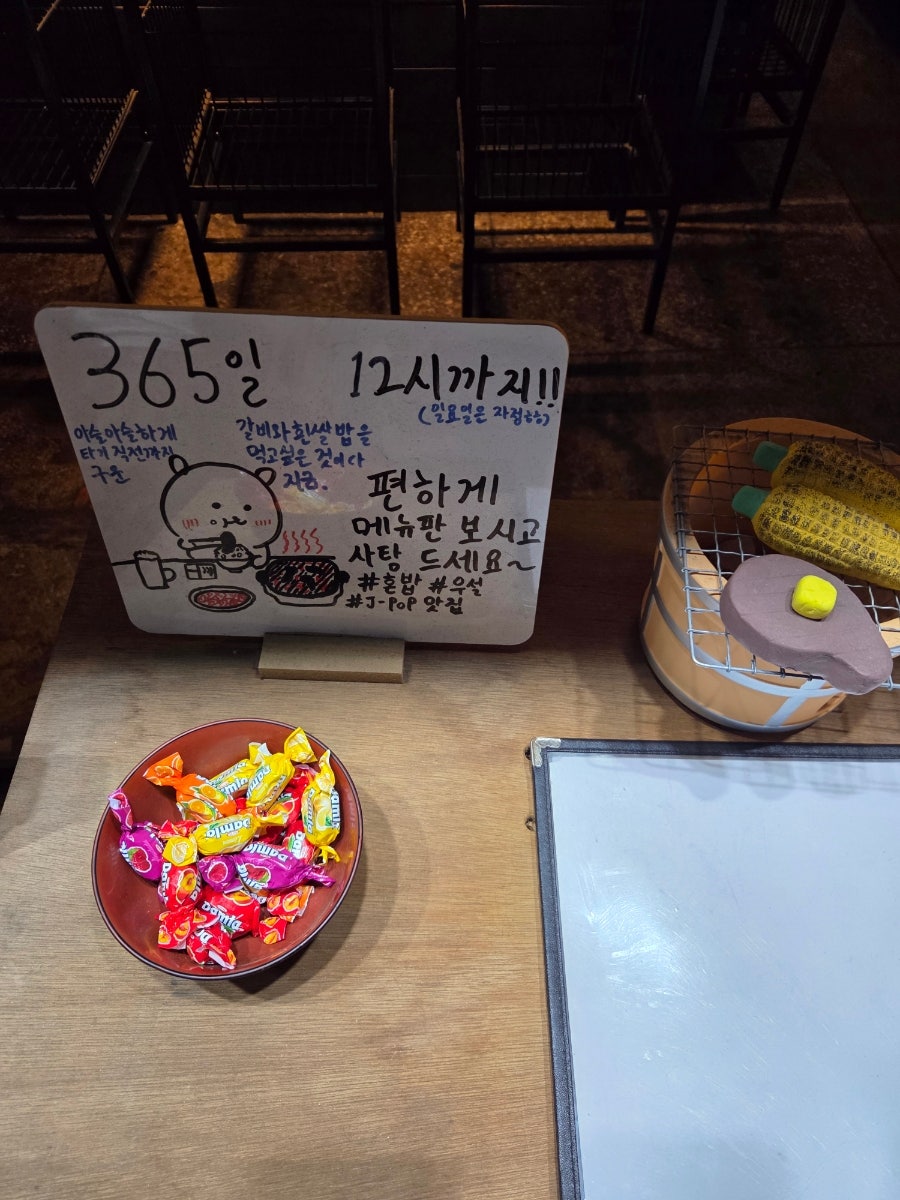 365일 12시까지!!
(일요일은 자정ㅎㅎ)
아슬아슬하게
타기 직전까지
구운
갈비와 흰쌀밥을
먹고싶은 것이다
지금.
편하게
메뉴판 보시고
사탕 드세요~
#혼밥 #우설
#J-POP 맛집
Damla
Damla
Damla
Damla